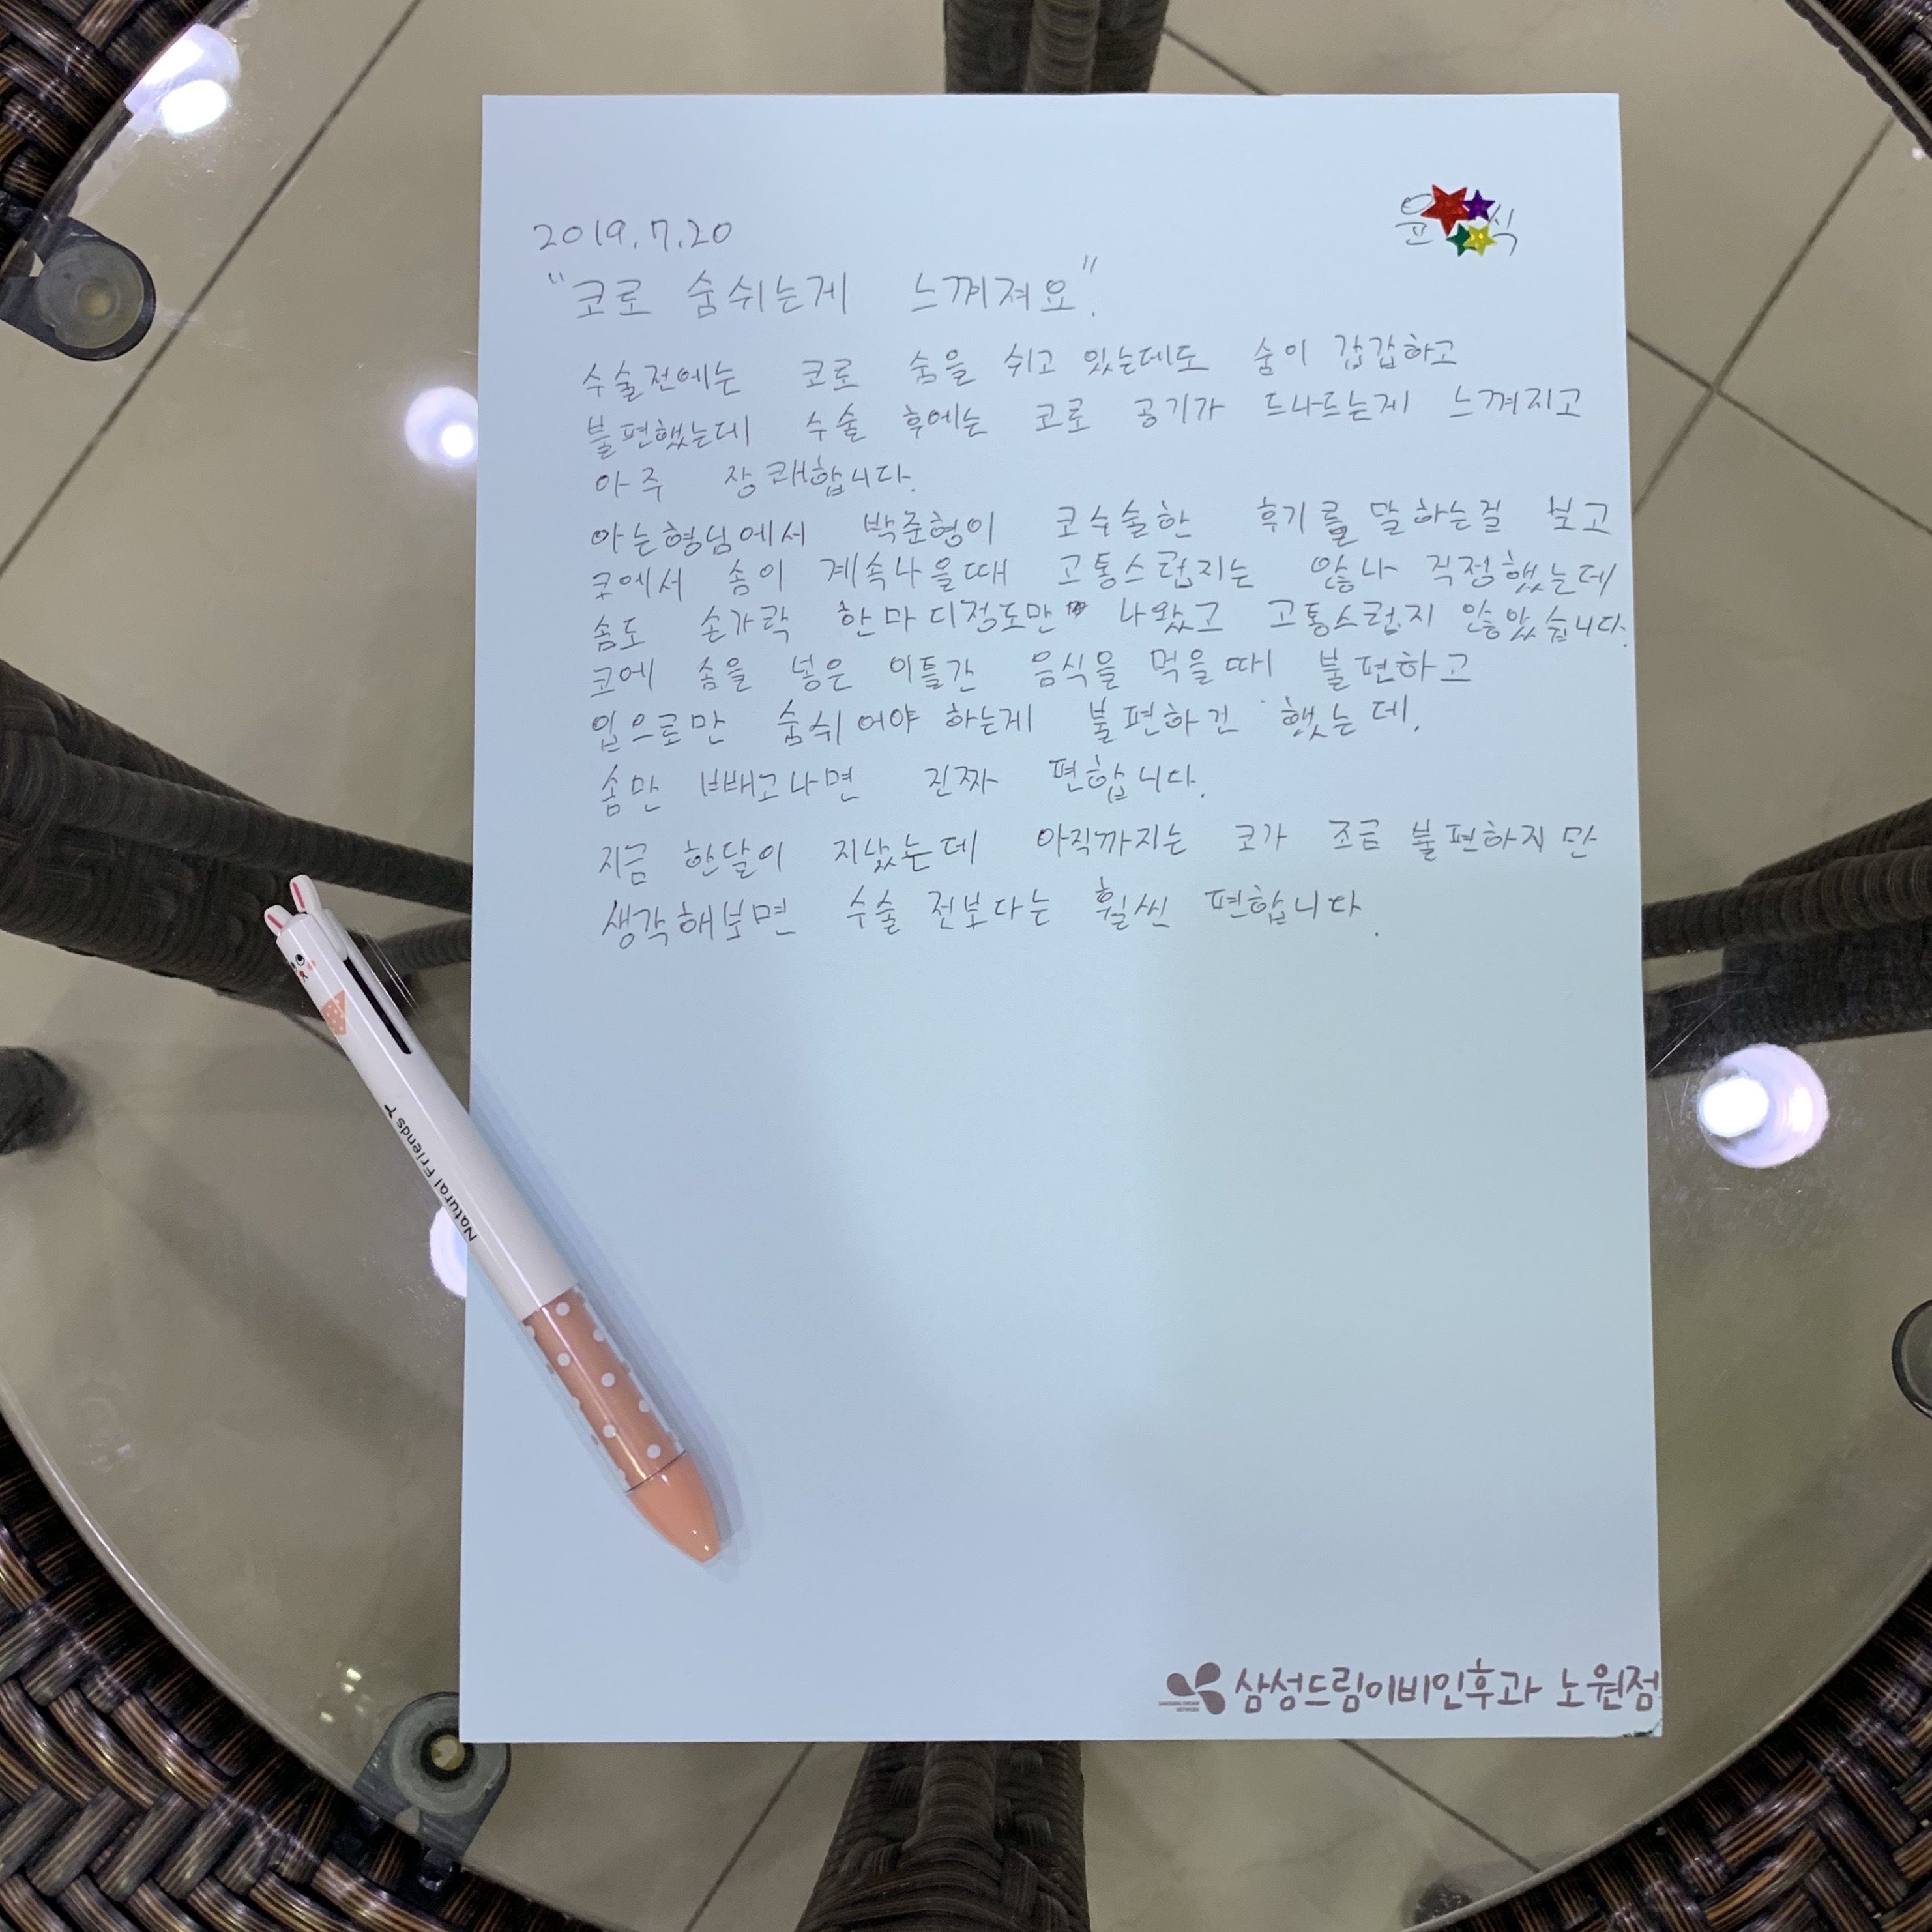 2019.7.20
윤 식
"코로 숨쉬는게 느껴져요".
수술전에는 코로 숨을 쉬고 있는데도 숨이 갑갑하고
불편했는데 수술 후에는 코로 공기가 드나드는게 느껴지고
아주 상쾌합니다.
아는형님에서 박준형이 코수술한 후기를 말하는걸 보고
코에서 솜이 계속나올때 고통스럽지는 않나 걱정했는데
솜도 손가락 한마디정도만 나왔고 고통스럽지 않았습니다.
코에 솜을 넣은 이틀간 음식을 먹을때 불편하고
입으로만 숨쉬어야 하는게 불편하긴 했는데.
솜만 빼고나면 진짜 편합니다.
지금 한달이 지났는데 아직까지는 코가 조금 불편하지만
생각해보면 수술 전보다는 훨씬 편합니다.
Natural Friends Y
삼성드림이비인후과 노원점